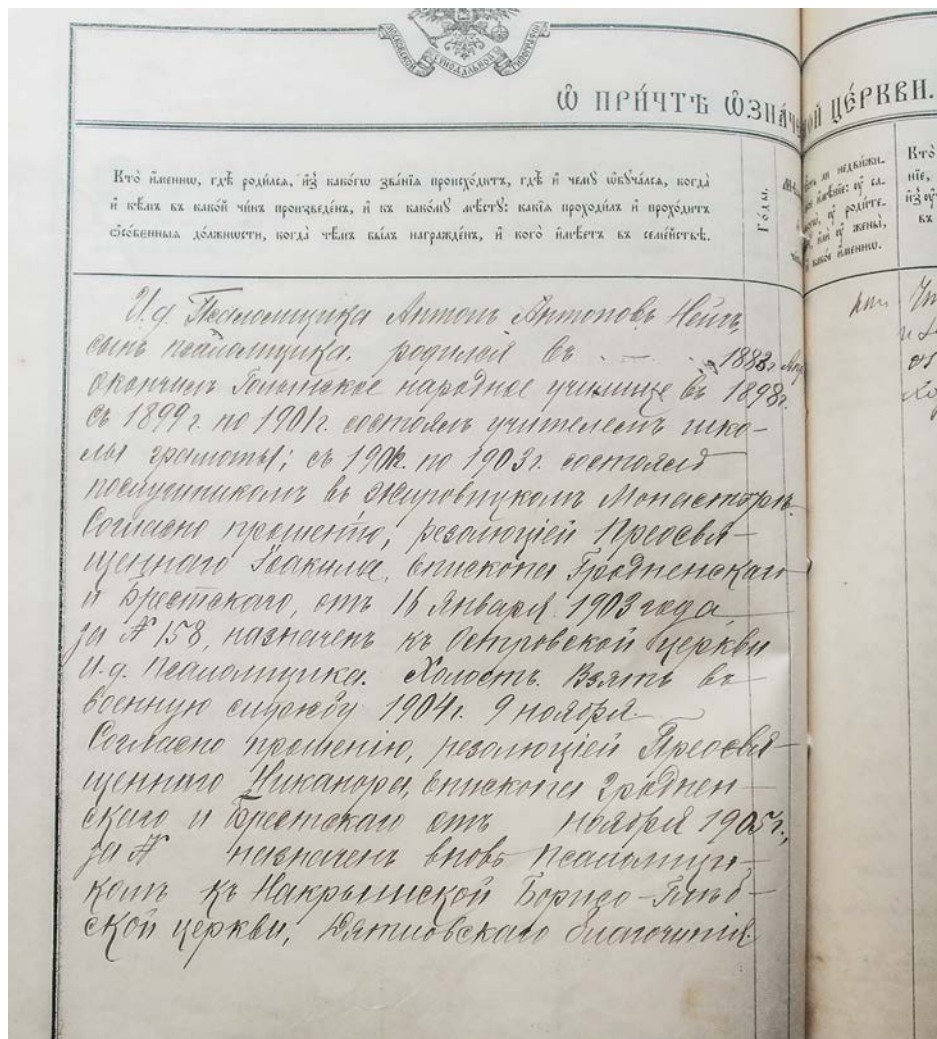 МОСКОВСКОЙ СѴНОДАЛЬНОЙ ТИПОГРАФІИ
Ѿ ПРИ́ЧТѢ Ѿ.ЗНА́Ч ОЙ ЦЕ́РКВИ.
Кто̀ и҆́меннѡ, гдѣ̀ роди́лсѧ, и҆з̾ какѡ́гѡ зва́нїѧ происхо́дитъ, гдѣ̀ и҆ чемꙋ̀ ѡ҆бꙋча́лсѧ, когда̀
и҆ кѣ́мъ въ како́й чи́нъ произведе́нъ, и҆ къ како́мꙋ мѣ́стꙋ: какі̑ѧ проходи́лъ и҆ прохо́дитъ
ѻ҆со́бенныѧ до́лжности, когда̀ чѣ́мъ бы́лъ награжде́нъ, и҆ кого̀ и҆мѣ́етъ въ семе́йствѣ.
Го́ды.
ли недви́жи-
и҆мѣ́нїе: ᲂу҆ са-
ᲂу҆ роди́те-
и҆лѝ ᲂу҆ жены̀,
како́е и҆́меннѡ.
Кто̀
нїе,
въ
И.д. Псаломщика Антонъ Антоновъ Нейъ,
сынъ псаломщика. родился въ 1883г
окончилъ Голынское народное училище въ 1898г.
съ 1899 г. по 1901г. состоялъ учителемъ шко-
лы грамоты; съ 1902. по 1903г. состоялъ
послушникомъ въ Жировицкомъ Монастырѣ.
Согласно прошенію, резолюціей Преосвя-
щеннаго Іоакима, епископа Гродненскаго
и Брестскаго, отъ 18 Января 1903 года
за № 158, назначенъ къ Островской церкви
И.д. псаломщика. Холостъ. Взятъ въ
военную службу 1904г. 9 ноября.
Согласно прошенію, резолюціей Преосвя-
щеннаго Никанора, епископа Гроднен-
скаго и Брестскаго отъ ноября 1905г.,
за № назначенъ вновь псаломщи-
комъ къ Накрышской Борисо-Глѣб-
ской церкви, Дятловскаго благочинія.